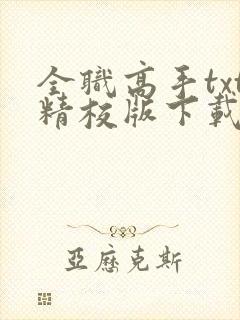 全職高手txt
精校版下載
亞歷克斯